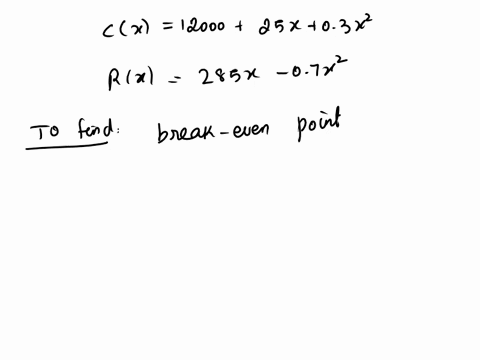 C(x) = 12000 + 25x + 0.3x²
R(x) = 285x - 0.7x²
To find: break-even point